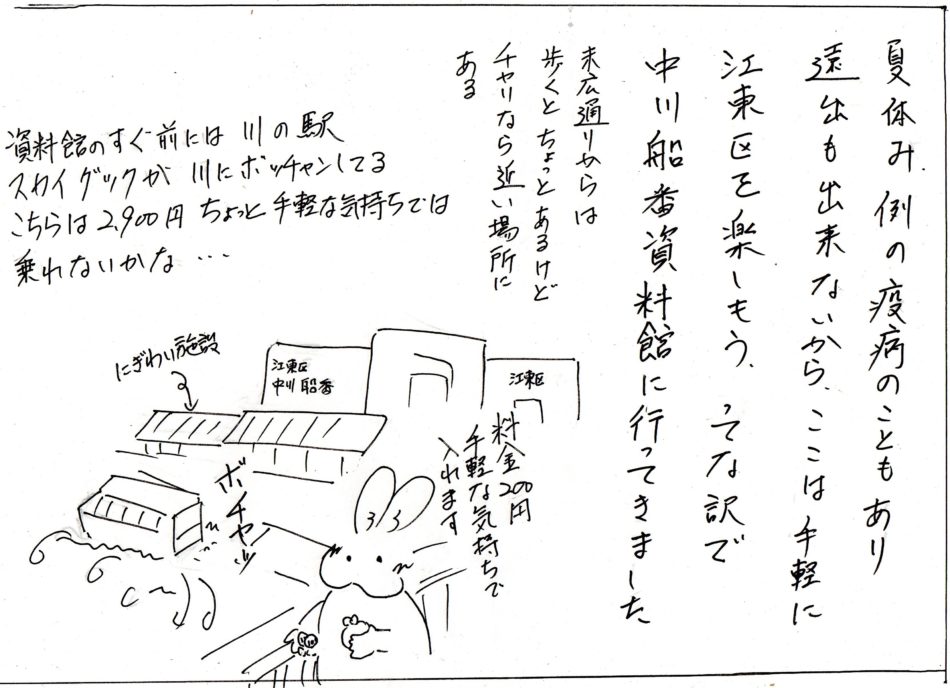 夏休み、例の疫病のこともあり
遠出も出来ないから、ここは手軽に
江東区を楽しもう、ってな訳で
中川船番資料館に行ってきました
末広通りからは
歩くとちょっとあるけど
チャリなら近い場所に
ある
資料館のすぐ前には 川の駅
スカイダックが 川にボッチャンしてる
こちらは2,900円 ちょっと手軽な気持ちでは
乗れないかな …
にぎわい施設
江東区
中川船番
江東区
料金200円
手軽な気持ちで
入れます
ボチャッ